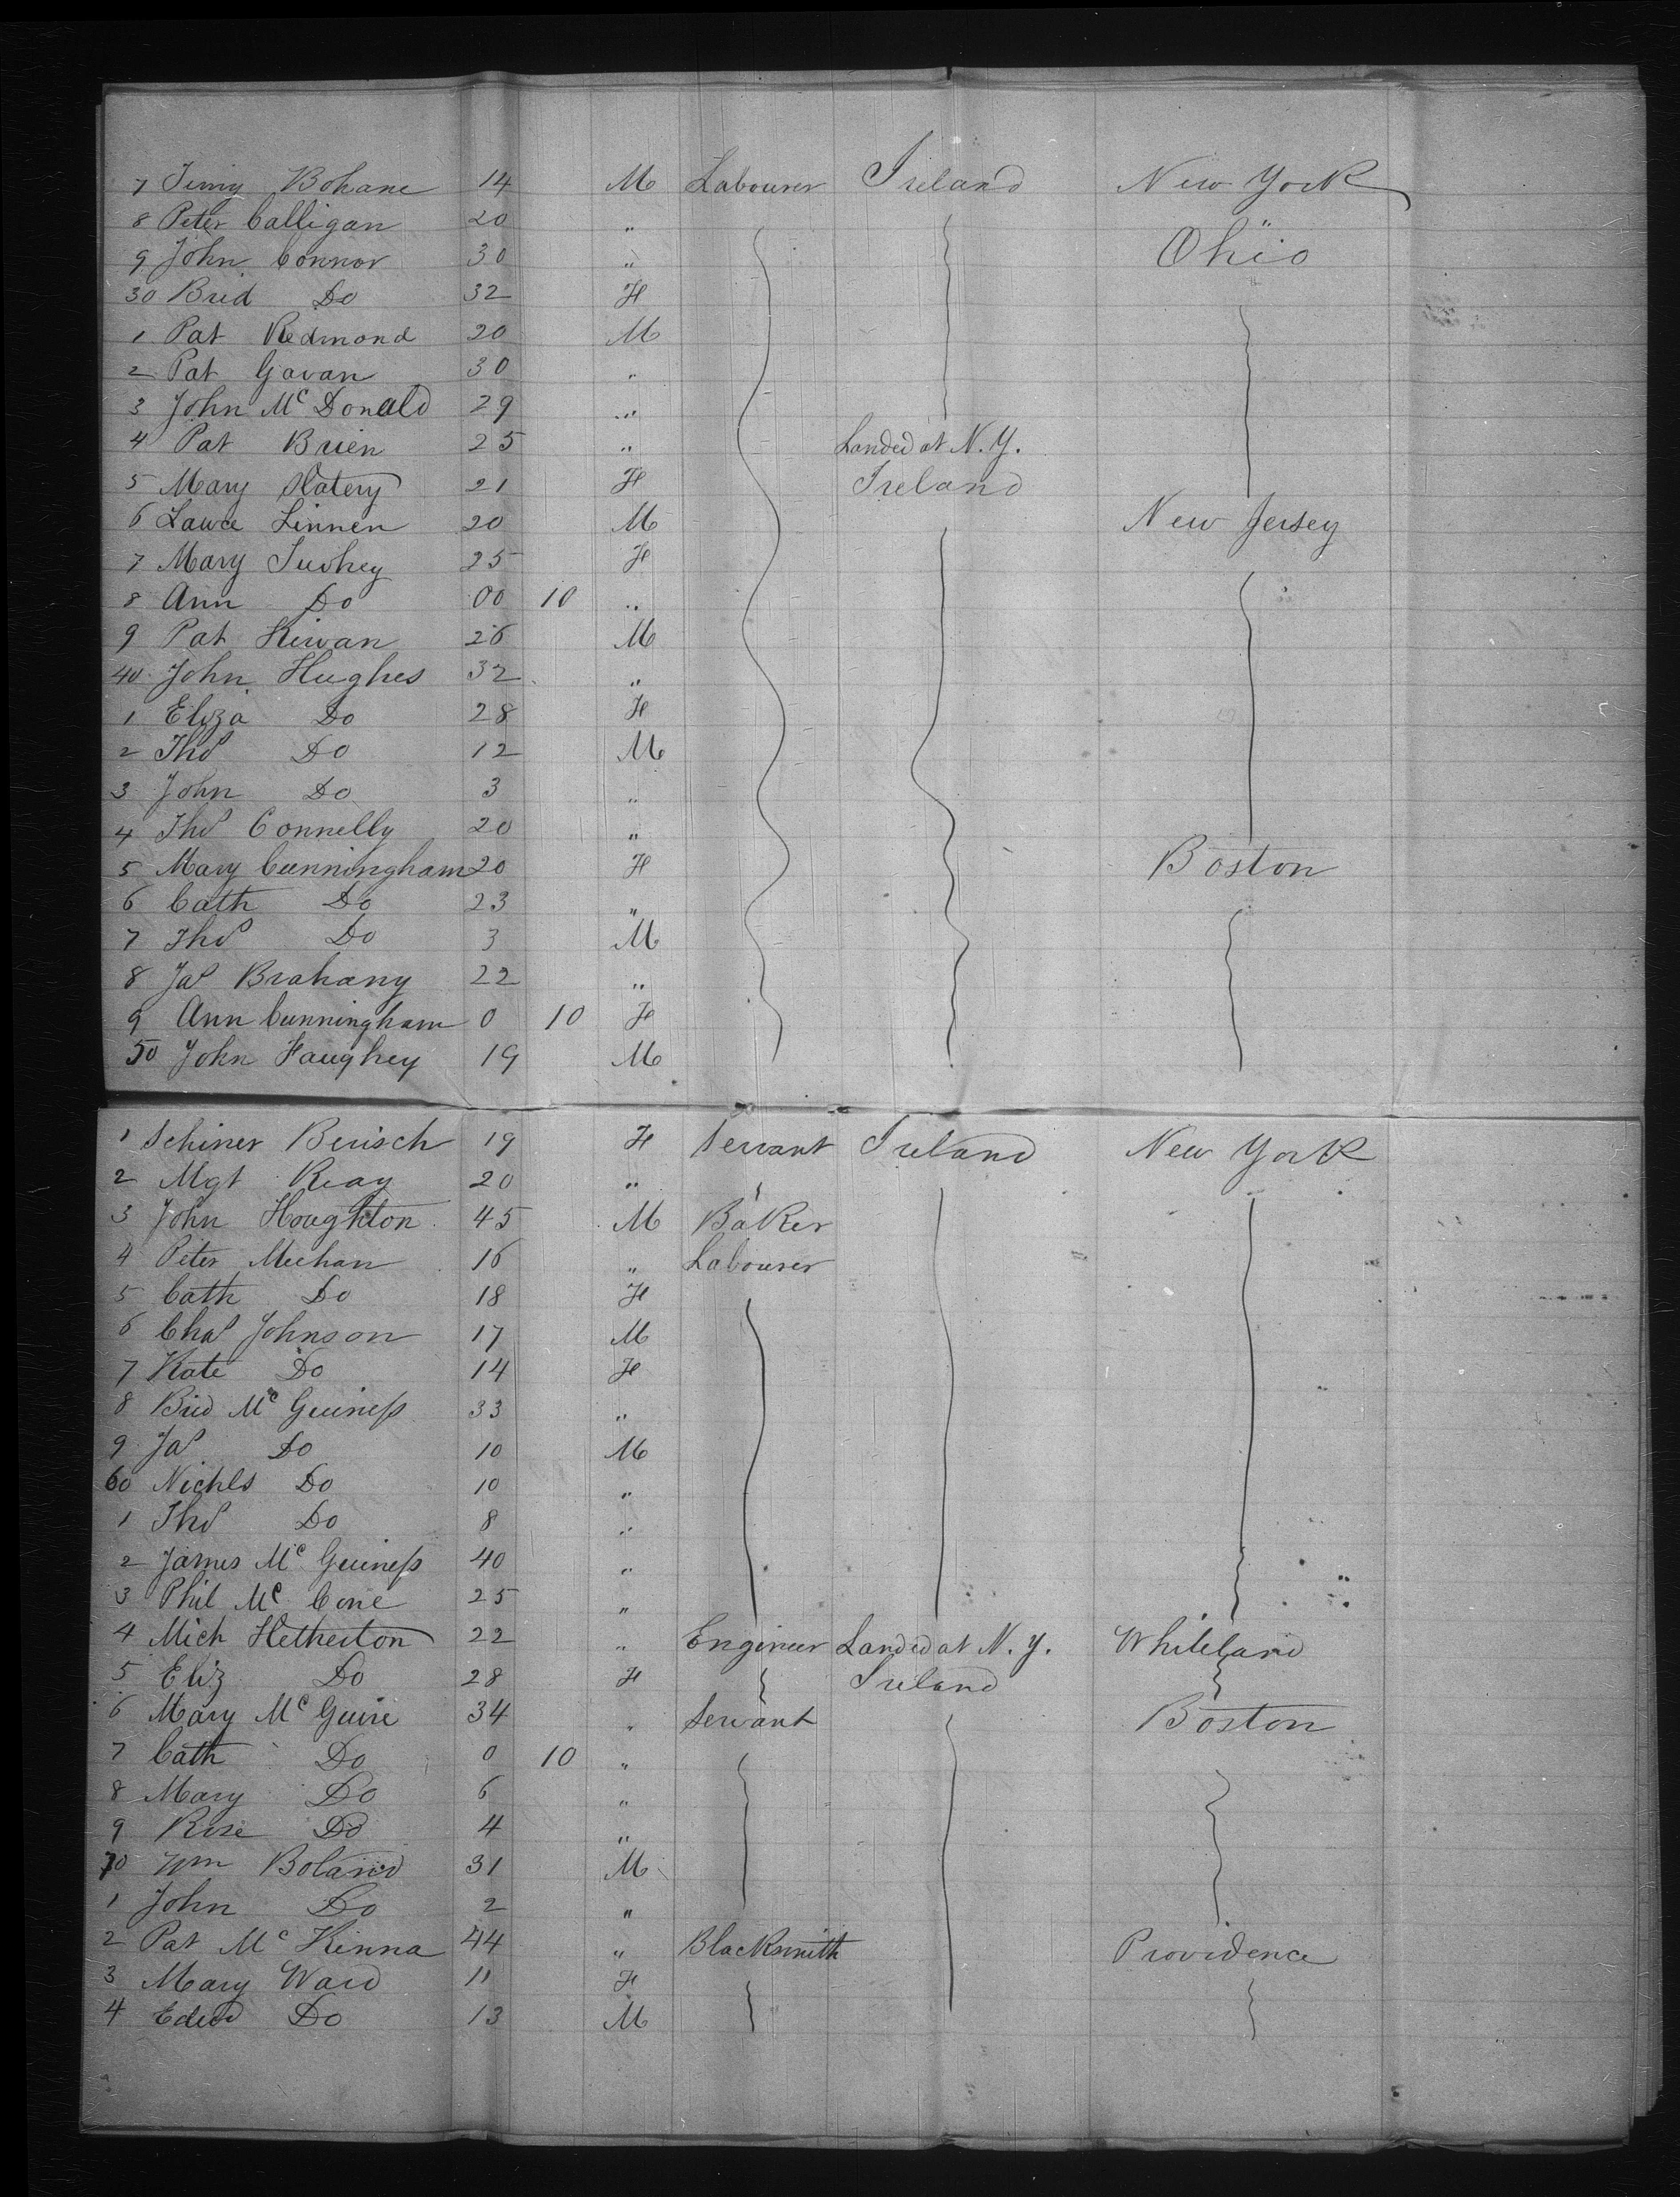 7 Jimy Bohane 14 M Labourer Ireland New York
8 Peter Calligan 20 "
9 John Connor 30 " Ohio
30 Brid Do 32 F
1 Pat Redmond 20 M
2 Pat Gavan 30 "
3 John Mc Donald 29 "
4 Pat Brien 25 " Landed at N.Y.
5 Mary Slatery 21 F Ireland
6 Lawce Linnen 20 M New Jersey
7 Mary 25 F
8 Ann Do 00 10 "
9 Pat Kirvan 26 M
40 John Hughes 32 "
1 Eliza Do 28 F
2 Thos Do 12 M
3 John Do 3 "
4 Thos Connelly 20 "
5 Mary Cunningham 20 F Boston
6 Cath Do 23 "
7 Thos Do 3 M
8 Jas Brahany 22 "
9 Ann Cunningham 0 10 F
50 John Faughey 19 M
1 Schiner Berisch 19 F Servant Ireland New York
2 Mgt Reay 20 "
3 John Houghton 45 M Baker
4 Peter Meehan 16 " Labourer
5 Cath Do 18 F
6 Chas Johnson 17 M
7 Kate Do 14 F
8 Brid Mc Guiness 33 "
9 Jas Do 10 M
60 Nichls Do 10 "
1 Thos Do 8 "
2 James Mc Guiness 40 "
3 Phil Mc Cone 25 "
4 Mich Hetherton 22 " Engineer Landed at N.Y. Whiteland
5 Eliz Do 28 F Ireland
6 Mary Mc Guire 34 " Servant Boston
7 Cath Do 0 10 "
8 Mary Do 6 "
9 Rose Do 4 "
70 Wm Boland 31 M
1 John Do 2 "
2 Pat Mc Kinna 44 " Blacksmith Providence
3 Mary Ward 11 F
4 Edwd Do 13 M